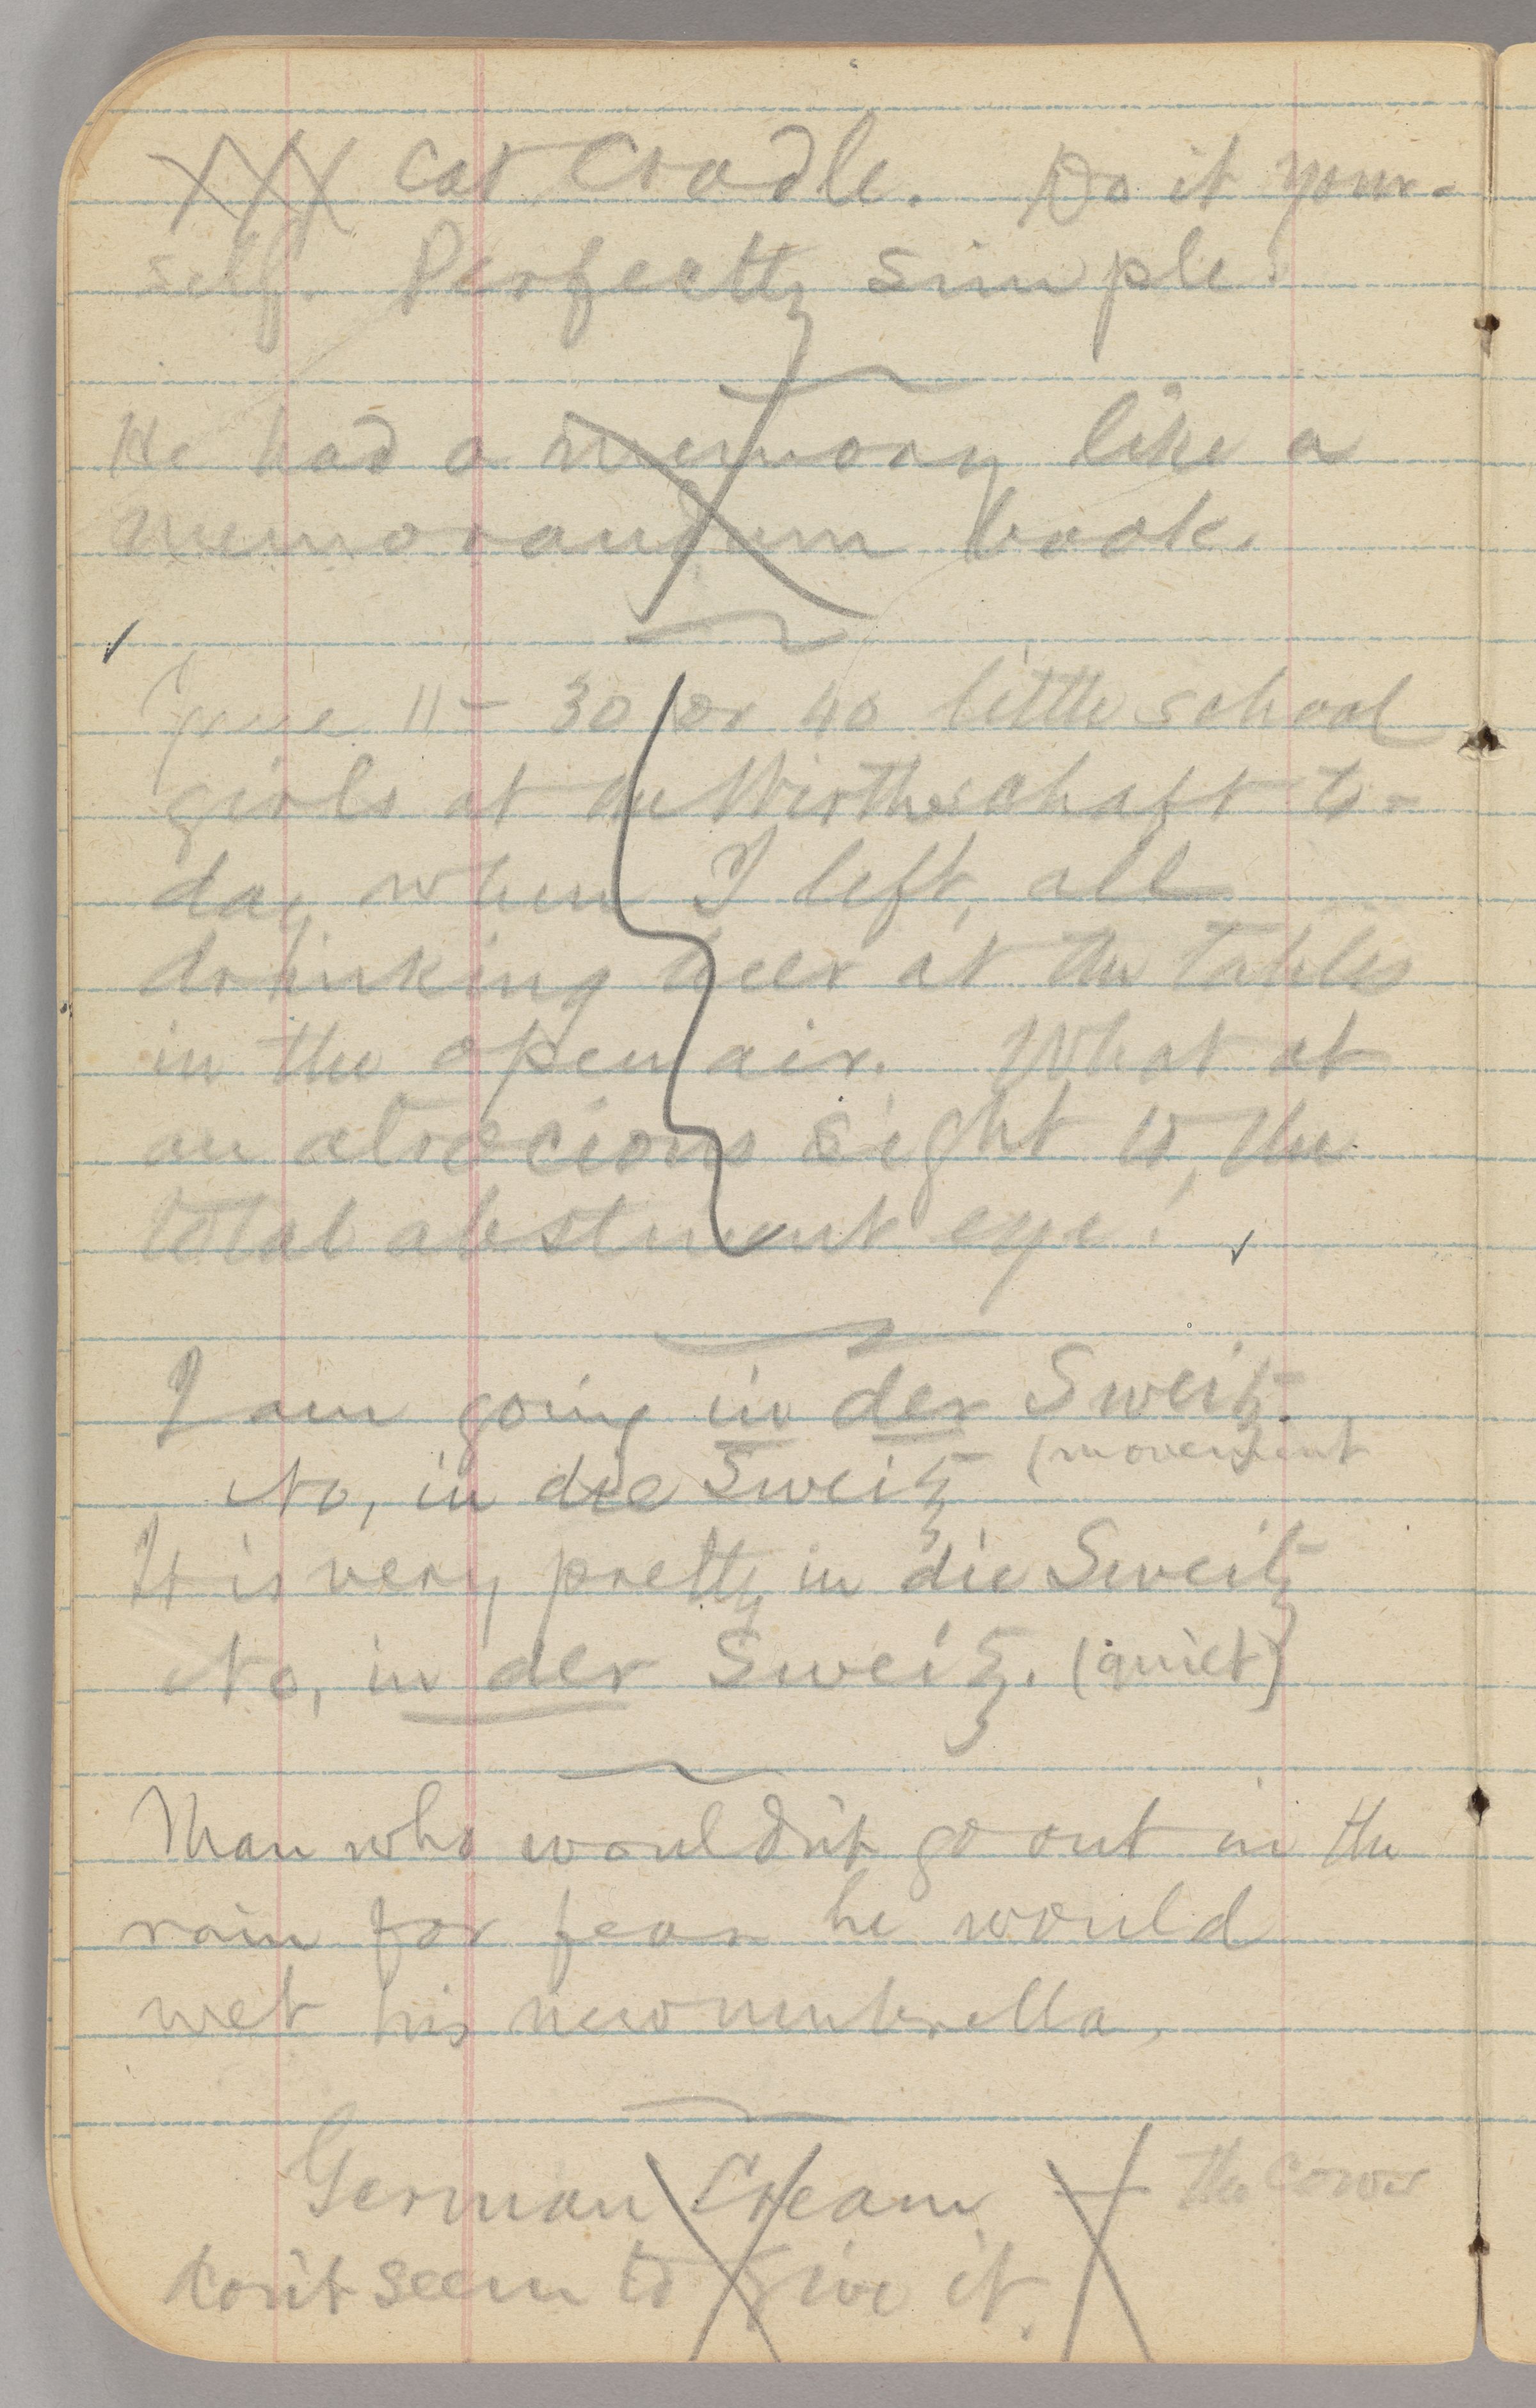 XXX Cat Cradle. Do it your-
self. Perfectly simple.
He had a memory like a
memorandum book.
June 11 - 30 or 40 little school
girls at the Wirthschaft to-
day when I left, all
drinking beer at the tables
in the open air. What at
an atrocious sight to the
total abstinent eye!
I am going in der Sweitz.
No, in die Sweitz (movement
It is very pretty in die Sweitz
No, in der Sweitz. (quiet)
Man who wouldn't go out in the
rain for fear he would
wet his new umbrella.
German Cream — the cows
don't seem to give it.